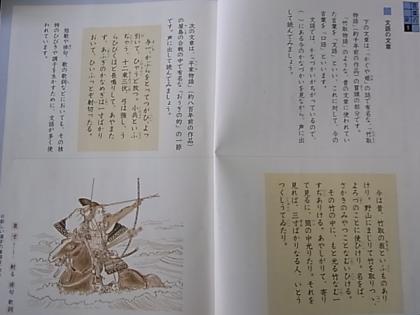 文語の文章
下の文章は、「かぐや姫」の話で有名な、「竹取
物語」(約千年前の作品)の冒頭の部分です。
「竹取物語」のような、昔の文章に使われてい
た言葉を「文語」といい、これに対して、今の
言葉を「口語」といいます。
文語では、かなづかいがちがっているので、
( )にある今のかなづかいを見ながら、声に出
して読んでみましょう。
今は昔、竹取の翁といふものあり
けり。野山にまじりて竹を取りつつ、
よろづのことに使ひけり。名をば、
さかきのみやつことなむいひける。
その竹の中に、もと光る竹なむ一
すぢありける。あやしがりて、寄り
て見るに、筒の中光りたり。それを
見れば、三寸ばかりなる人、いとう
つくしうてゐたり。
次の文章は、「平家物語」(約八百年前の作品)
の屋島の合戦の中で有名な、「おうぎの的」の一節
です。声に出して読んでみましょう。
与一、かぶらをとってつがひ、よっ
ぴいて、ひやうど放つ。小兵といふ
ぢやう、十二束三伏、弓は強し、う
らひびくほど長鳴りして、あやまた
ず、あふぎのかなめぎは一寸ばかり
おいて、ひいふつとぞ射切ったる。
短歌や俳句、歌の歌詞などにおいても、その独
特のひびきや調子を生かすために、文語が多く使
われています。